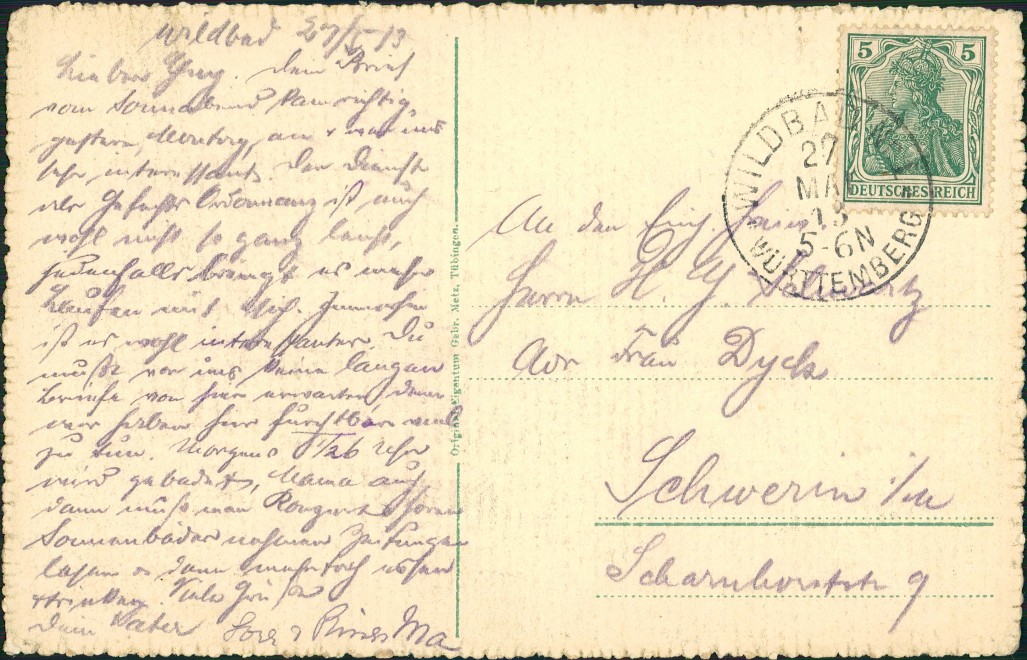 Wildbad 27/5 13
Lieber Dein Brief
vom Sonnabend kam richtig
gestern, Montag, an & war uns
sehr interessant. Der Dienst
als Gefechts Ordonnanz ist auch
wohl nicht so ganz leicht,
jedenfalls bringt es mehr
Laufen mit sich. Immerhin
ist es wohl interessanter. Du
mußt von uns keine langen
Briefe von hier erwarten, denn
wir haben hier furchtbar viel
zu tun. Morgens 1/26 Uhr
wird gebadet, Mama auch,
dann muß man Konzert hören
Sonnenbäder nehmen Zeitungen
lesen & dann mehrfach essen
& trinken. Viele Grüße
Dein Vater Ma
Original-Eigentum Gebr. Metz, Tübingen.
5 5
DEUTSCHES REICH
WILDBAD
27
MAI
13
5-6N
WÜRTTEMBERG
An den Einj.
Herrn H. Y.
Adr Frau Dyck
Schwerin i/M
Scharnhorststr 9